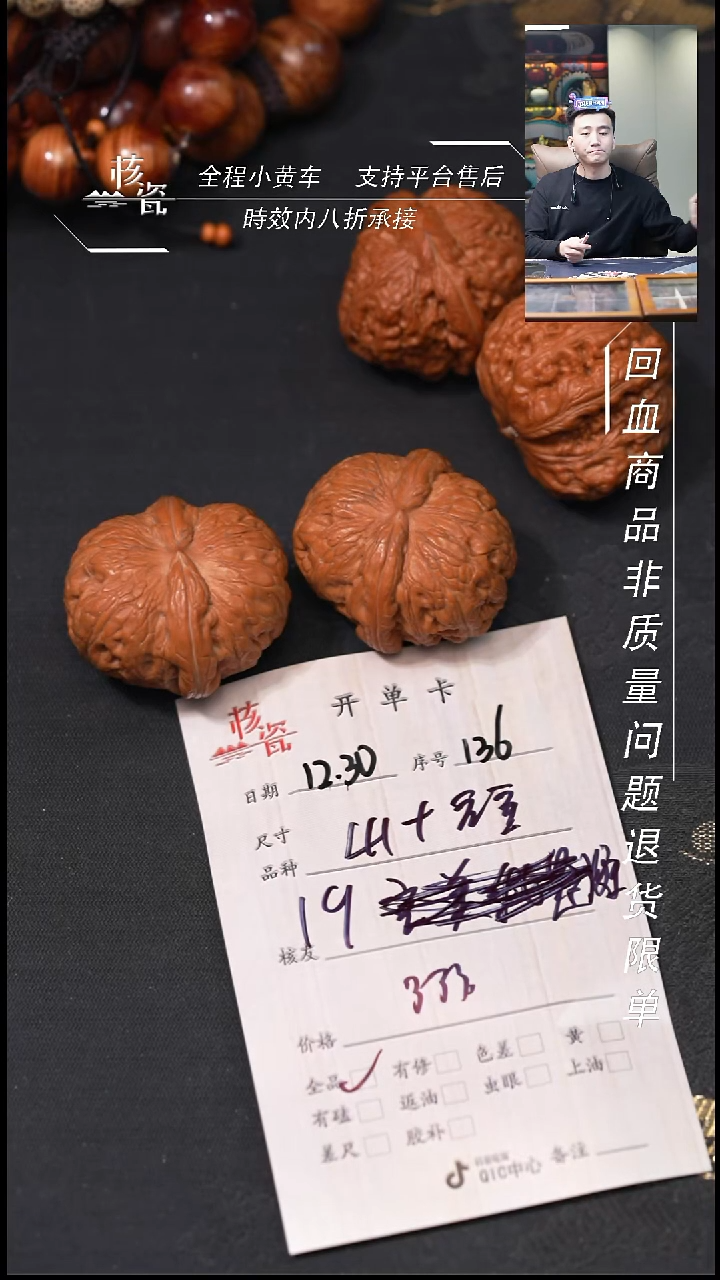 核瓷
全程小黄车 支持平台售后
時效内八折承接
回血商品非质量问题退货限单
核瓷
开单卡
日期 12.30 序号 136
尺寸
品种
19
核友
333
价格
全品 有修 色差 黄
有磕 返油 虫眼 上油
差尺 胶补
QIC中心 备注